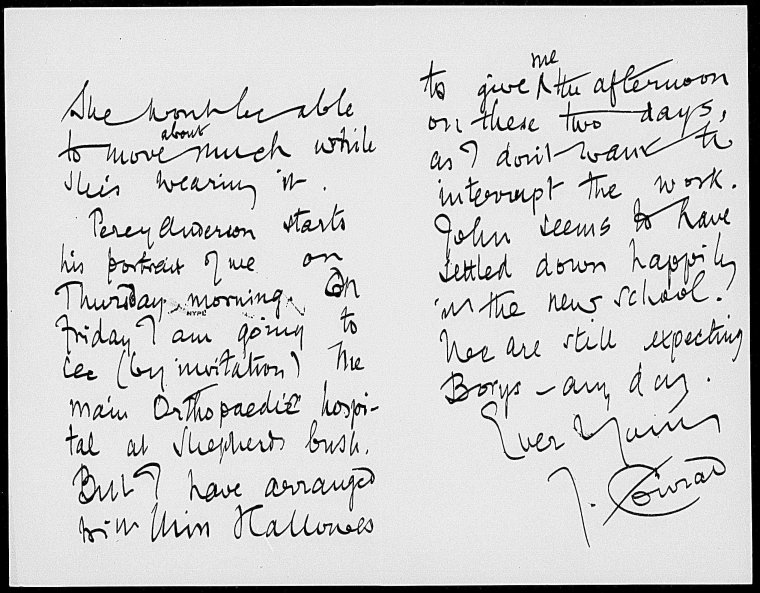 She won't be able
to move about much while
she is wearing it.
Percy Anderson starts
his portrait of me on
Thursday morning. On
Friday I am going to
see (by invitation) the
main Orthopaedic hospi-
tal at Shepherds bush.
But I have arranged
with Miss Hallowes
to give me the afternoon
on these two days,
as I don't want to
interrupt the work.
John seems to have
settled down happily
in the new school.
We are still expecting
Borys – any day.
Ever Yours
J. Conrad